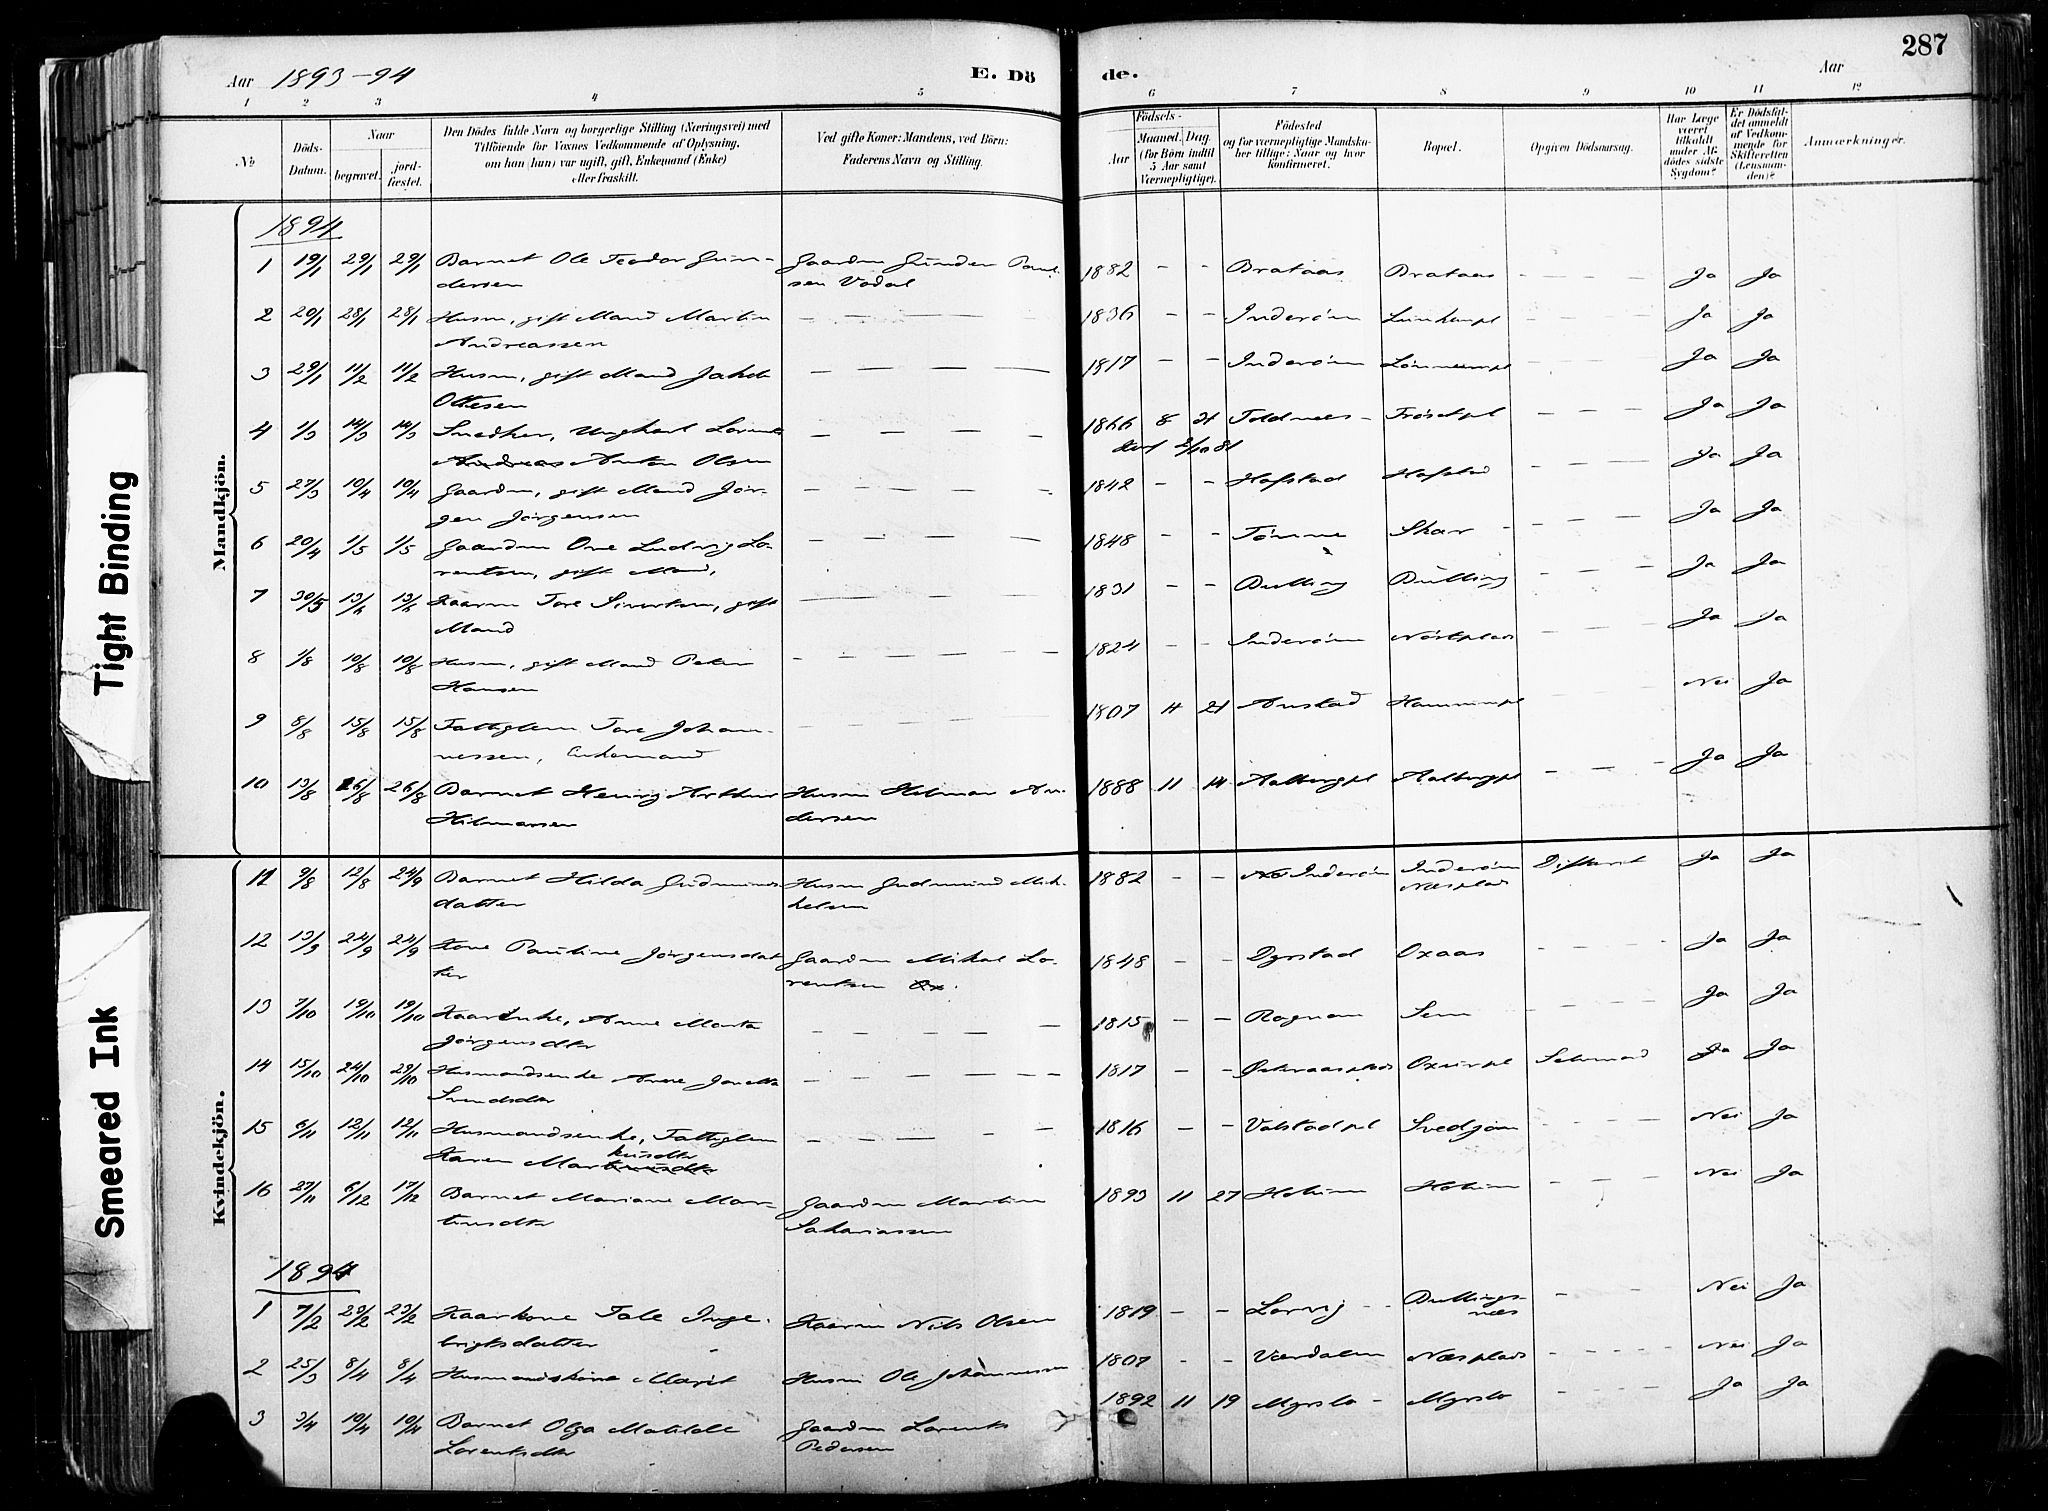 287
Aar 1893-94
E. Dö
de.
Aar
1 2 3 4 5 6 7 8 9 10 11 12
No
Döds-Datum.
Naar
begravet.
jord-fæstet.
Den Dödes fulde Navn og borgerlige Stilling (Næringsvei) med
Tilföiende for Voxnes Vedkommende af Oplysning,
om han (hun) var ugift, gift, Enkemand (Enke)
eller fraskilt.
Ved gifte Koner: Mandens, ved Börn:
Faderens Navn og Stilling.
Födsels-
Aar
Maaned.
Dag.
(for Börn indtil
5 Aar samt
Værnepligtige).
Födested
og for værnepligtige Mandsku-
ber tillige: Naar og hvor
konfirmeret.
Bopæl.
Opgiven Dödsaarsag.
Har Læge
været
tilkaldt
under Af-
dödes sidste
Sygdom?
Er Dödsfal-
det anmeldt
af Vedkom-
mende for
Skifteretten
(Lensman-
den)?
Anmærkninger.
Mandkjön.
1894
1 19/1 29/1 29/1 Barnet Ole Teodor Gun- Gaardm Gunder Paul- 1882 - - Brataas Brataas - - - - Ja Ja
dersen sen Vodal
2 20/1 28/1 28/1 Husm, gift Mand Martin - - - - 1836 - - Inderöen - - - - Ja Ja
Andreassen
3 29/1 11/2 11/2 Husm, gift Mand Jakob - - - - 1817 - - Inderöen - - - - Ja Ja
Ottesen
4 1/3 14/3 14/3 Snedker, Ungkarl Lorents - - - - 1866 8 21 Toldnæs - Tröitepl - - - Ja Ja
Andreas Anton Olsen 2/10 81
5 27/3 10/4 10/4 Gaardm, gift Mand Jör- - - - - 1842 - - Hofstad Hofstad - - - Ja Ja
gen Jörgensen
6 20/4 1/5 1/5 Gaardm Ove Ludvig Lo- - - - - 1848 - - Tömme Skar - - - - Ja Ja
rentsen, gift Mand,
7 30/5 13/6 13/6 Kaarm Tore Sivertsen, gift - - - - 1831 - - Dulling Dulling - - - - Ja Ja
Mand
8 1/8 10/8 10/8 Husm, gift Mand Peter - - - - 1824 - - Inderöen Nöstplads - - - Ja Ja
Hansen
9 8/8 15/8 15/8 Fattiglem Tore Johan- - - - - 1807 4 21 Austad - - - Nei Ja
nessen, Enkemand
10 13/8 26/8 26/8 Barnet Henry Arthur Husm Hilmar An- 1888 11 14 Aalbergpl Aalbergpl - - - Ja Ja
Hilmarsen dersen
Kvindekjön.
11 9/8 12/8 24/9 Barnet Hilda Gudmunds Husm Gudmund Mik- 1882 - - Inderöen Inderöen Difterit Ja Ja
datter kelsen Næsplads
12 13/9 24/9 24/9 Kone Pauline Jörgensdat Gaardm Mikal Lo- 1848 - - Dyrstad Oxaas - - - - Ja Ja
ter rentsen Ox.
13 7/10 19/10 19/10 KaarEnke, Anne Marta - - - - 1815 - - Rognan Sem - - - - Ja Ja
Jörgensdtr
14 15/10 24/10 29/10 Husmandsenke Anne Janetta - - - - 1817 - - Oxeirpl Ja Ja
Svendsdtr
15 6/11 12/11 12/11 Husmandsenke, Fattiglem - - - - 1816 - - Valstadpl Svedjan - - - - Nei Ja
Karen Martinusdtr kusdtr
16 27/11 6/12 17/12 Barnet Mariane Mar- Gaardm Martin 1893 11 27 Heiem Heiem - - - Nei Ja
tinsdtr Sakariassen
1894
1 7/2 23/2 23/2 Kaarkone Tale Inge- Kaarm Nils Olsen 1819 - - Lorvig - - Dullings- - - Nei Ja
brigtsdatter næs
2 25/3 8/4 8/4 Husmandskone Marit Husm Ole Johannessen 1807 - - Værdalen Næsplads - - - - Nei Ja
3 3/4 10/4 10/4 Barnet Olga Matilde Gaardm Lorents 1892 11 19 Myrslo - Myrslo - - - - Ja Ja
Lorentsdtr Pedersen
Tight Binding
Smeared Ink